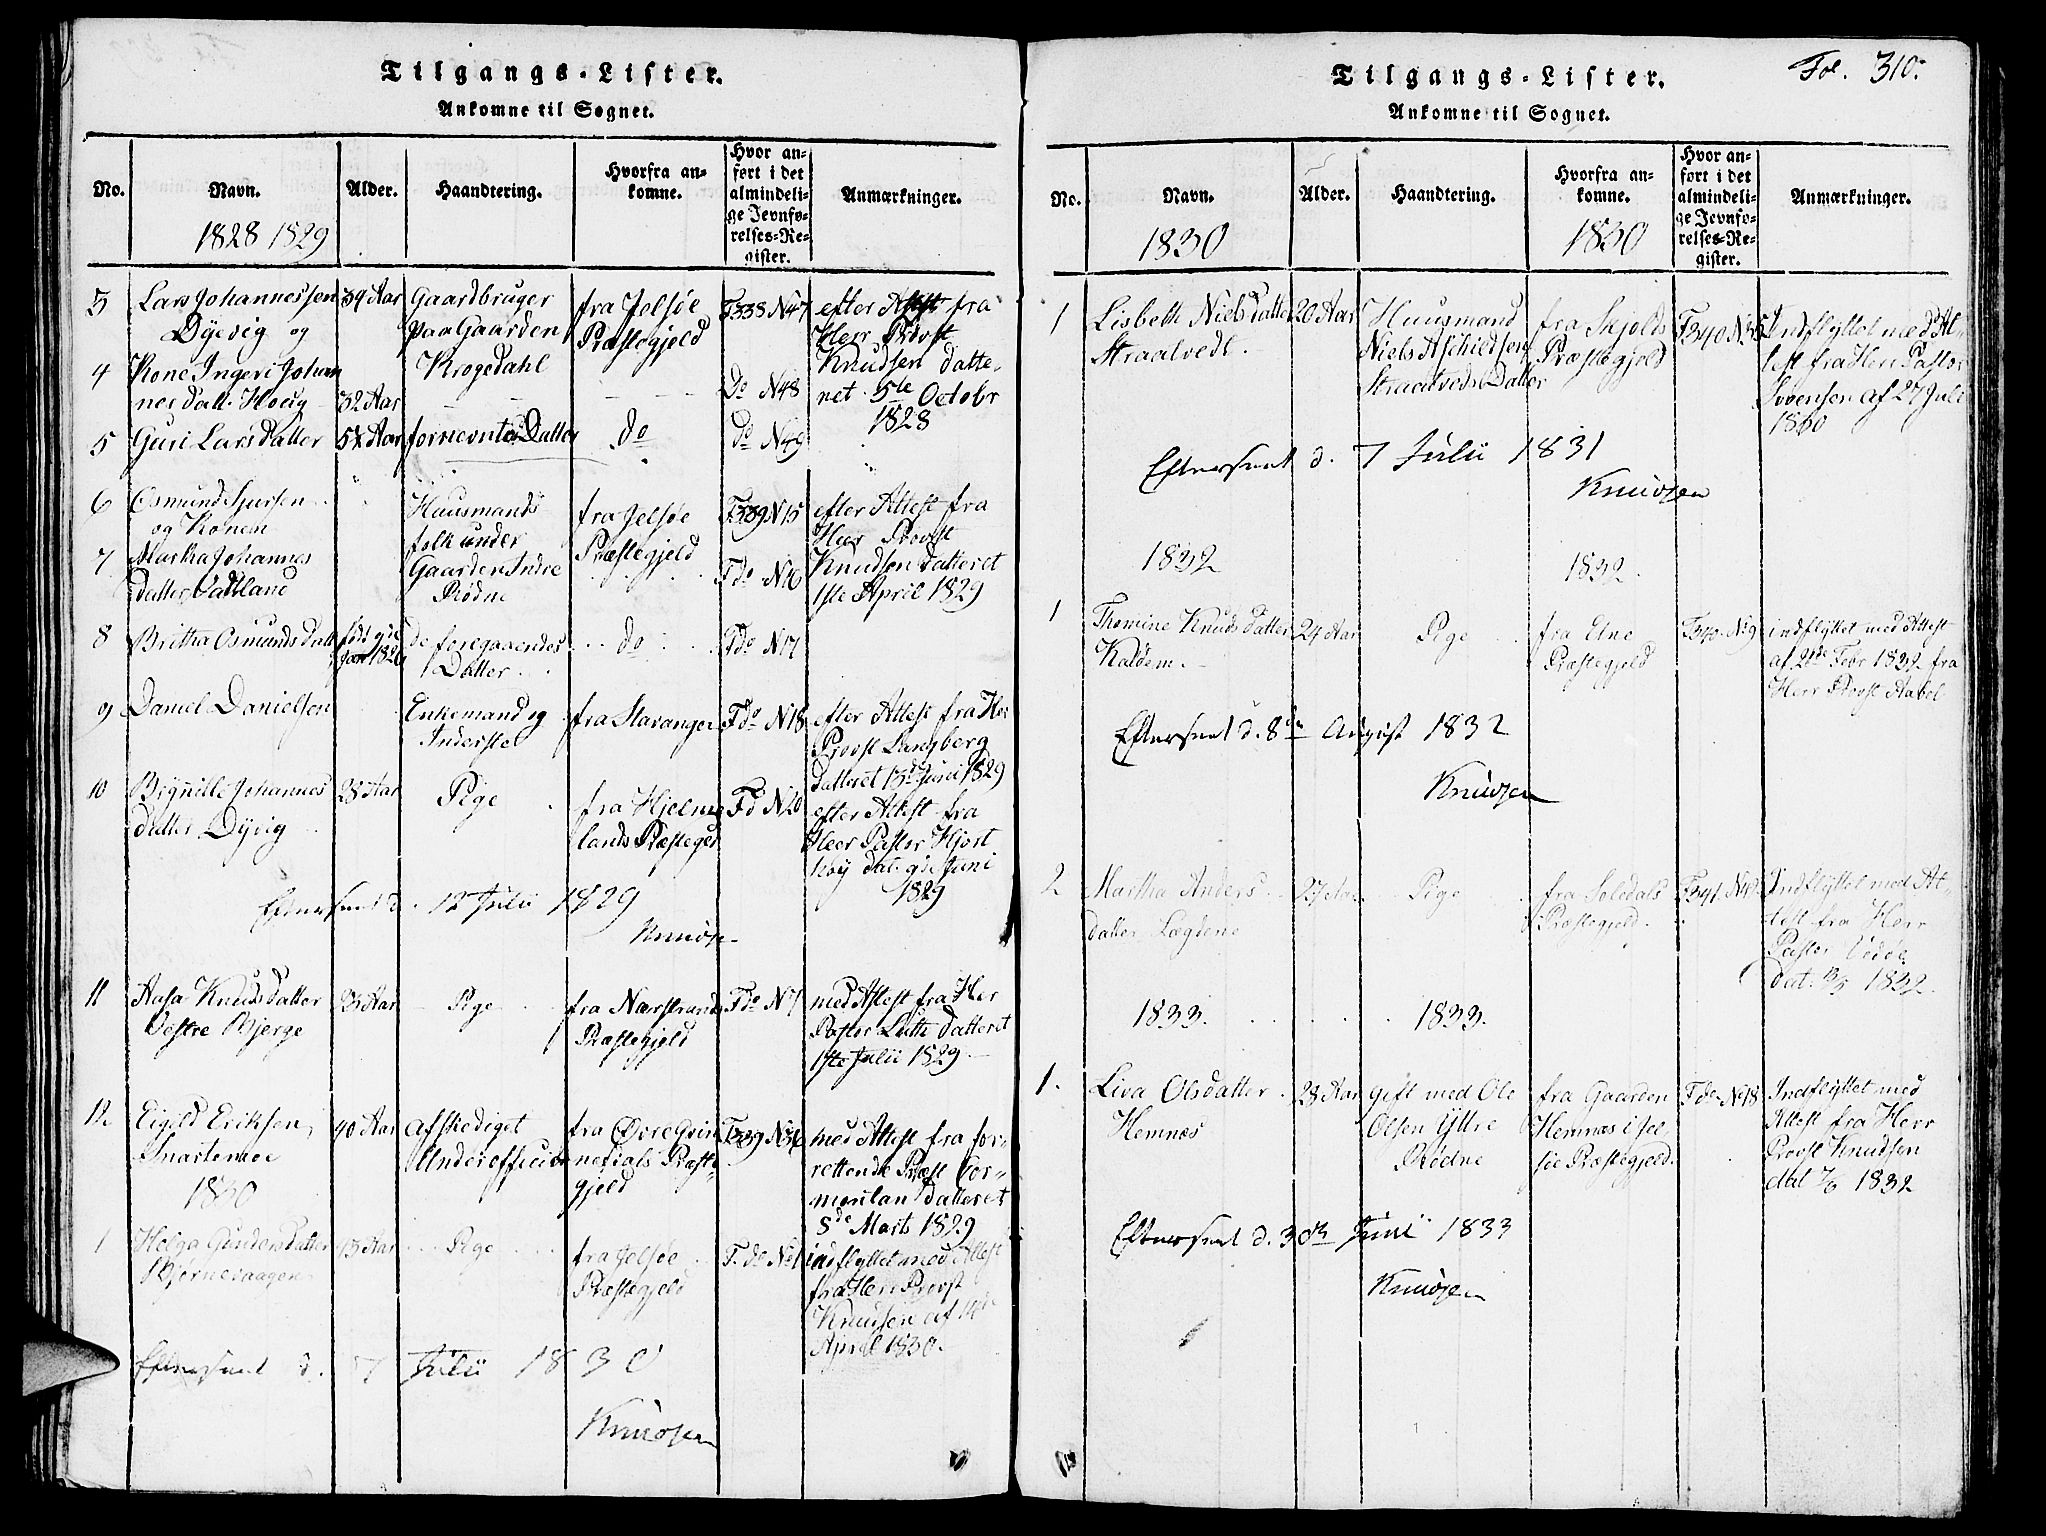 Tilgangs-Lister.
Ankomne til Sognet.
No.
Navn.
Alder.
Haandtering.
Hvorfra an-
komne.
Hvor an-
ført i det
almindeli-
ge Jevnfø-
relses-Re-
gister.
Anmærkninger.
1828 1829
Lars Johannessen
Dyevig og
39 Aar
Gaardbruger
paa Gaarden
Krogedahl
fra Jelsøe
Præstegjeld
F338 N47
efter Attest fra
Herr Provst
Knudsen datte-
ret 5te Octobr
1828
4
Kone Ingeri Johan
nes datt. Houg
32 Aar
Do N48
5
Guri Larsdatter
fornevntes Datter
do
do N49
6
Osmund Sjursen
og Konen
Huusmands
folk under
Gaarden Indre
Rødne
fra Jelsøe
Præstegjeld
F339 N15
efter Attest fra
Herr Provst
Knudsen datteret
1ste April 1829
7
Martha Johannes
datter Vatland
Fdo N16
8
Britha Osmunds datt
født 9de
Jan 1826
de foregaaendes
Datter
do
Fdo N17
9
Daniel Danielsen
Enkemand og
Inderste
fra Stavanger
Fdo N18
efter Attest fra Her
Provst Langberg
datteret 13de Juni 1829
10
Johannes
datter Dyvig
28 Aar
Pige
fra Hjelme
lands Præstegd
Fd N20
efter Attest fra
Herr Pastor Hjort
høy dat. 9de Juni
1829
Efterseet d. 12 Julii 1829
Knudsen
11
Aasa Knudsdatter
Vestre Bjerge
23 Aar
Pige
fra Nærstrands
Præstegjeld
Fdo N7
med Attest fra Her
Pastor Lutti datteret
1ste Julii 1829
12
Eigild Eriksen
Snartemoe
40 Aar
Afskediget
Underofficier
fra Øvre Qvin
nefials Præste
gjeld
F339 No 36
med Attest fra for-
rettende Præst Cor-
montan datteret
8de Marts 1829
1830
1
Helga Gundersdatter
Bjørnevaagen
13 Aar
Pige
fra Jelsøe
Præstegjeld
F. do No 1
indflyttet med Attest
fra Herr Provst
Knudsen af 14de
April 1830.
Efterseet d. 7 Julii 1830
Knudsen
Fol. 310.
Tilgangs-Lister.
Ankomne til Sognet.
No.
Navn.
Alder.
Haandtering.
Hvorfra an-
komne.
Hvor an-
ført i det
almindeli-
ge Jevnfø-
relses-Re-
gister.
Anmærkninger.
1830
1830
1
Lisbeth Nielsdatter
Straatvedt.
20 Aar
Huusmand
Niels Aschildsen
Straatveds Datter
fra Skjolds
Præstegjeld
Indflyttet med At-
test fra Herr Pastor
Svensen af 27 Juli
1830
Efterseet d. 7 Julii 1831
Knudsen
1832
1832.
1
Thomine Knudsdatter
Kaldem.
24 Aar
Pige
fra Etne
Præstegjeld
F340. No 9
indflyttet med Attest
af 21de Febr 1832 fra
Herr Provst Aabel
Efterseet d. 8de August 1832
Knudsen
2
Martha Anders
datter Lægdene
27 Aar
Pige
fra Søledals
Præstegjeld.
Indflyttet med At-
test fra Herr
Pastor
1832.
1833.
1833.
1.
Liva Olsdatter
Hemnæs
28 Aar
gift med Ole
Olsen Yttre
Rødne
fra Gaarden
Hemnæs i Jel
søe Præstegjeld.
F do No 18
Indflyttet med
Attest fra Herr
Provst Knudsen
dat 7/6 1832
Efterseet d. 30th Juni 1833
Knudsen